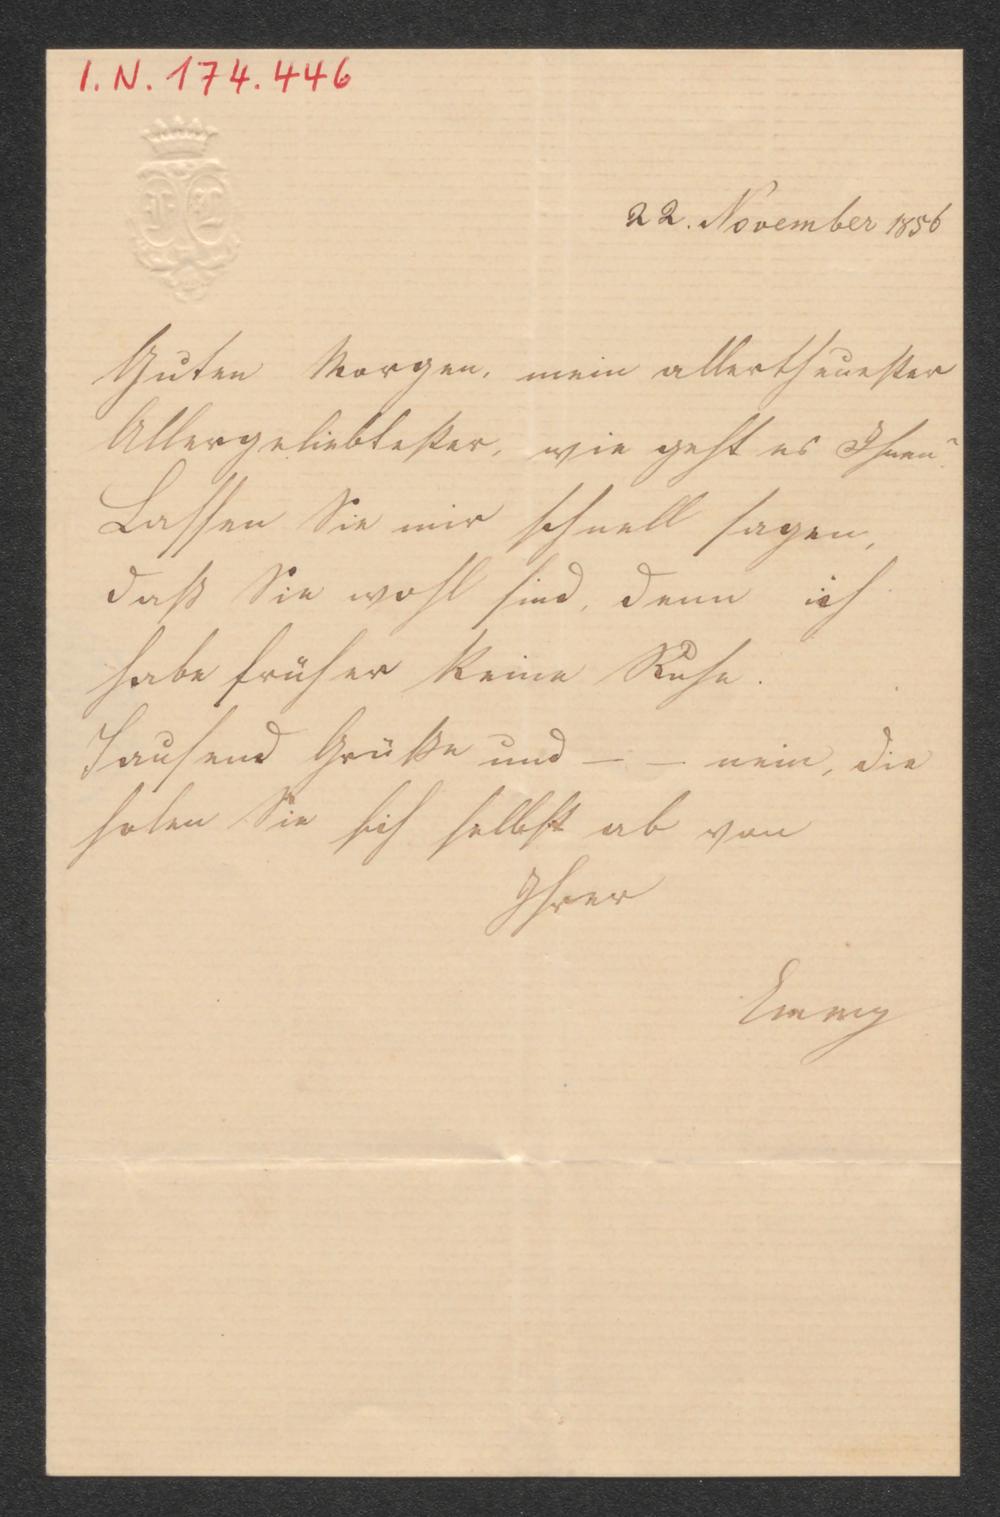 I.N. 174.446
22. November 1856
Guten Morgen, mein allertheuester
Allergeliebtester, wie geht es Ihnen?
Lassen Sie mir schnell sagen,
daß Sie wohl sind, denn ich
habe früher keine Ruhe.
Tausend Grüße und — — nein, die
holen Sie sich selbst ab von
Ihrer
Emmy